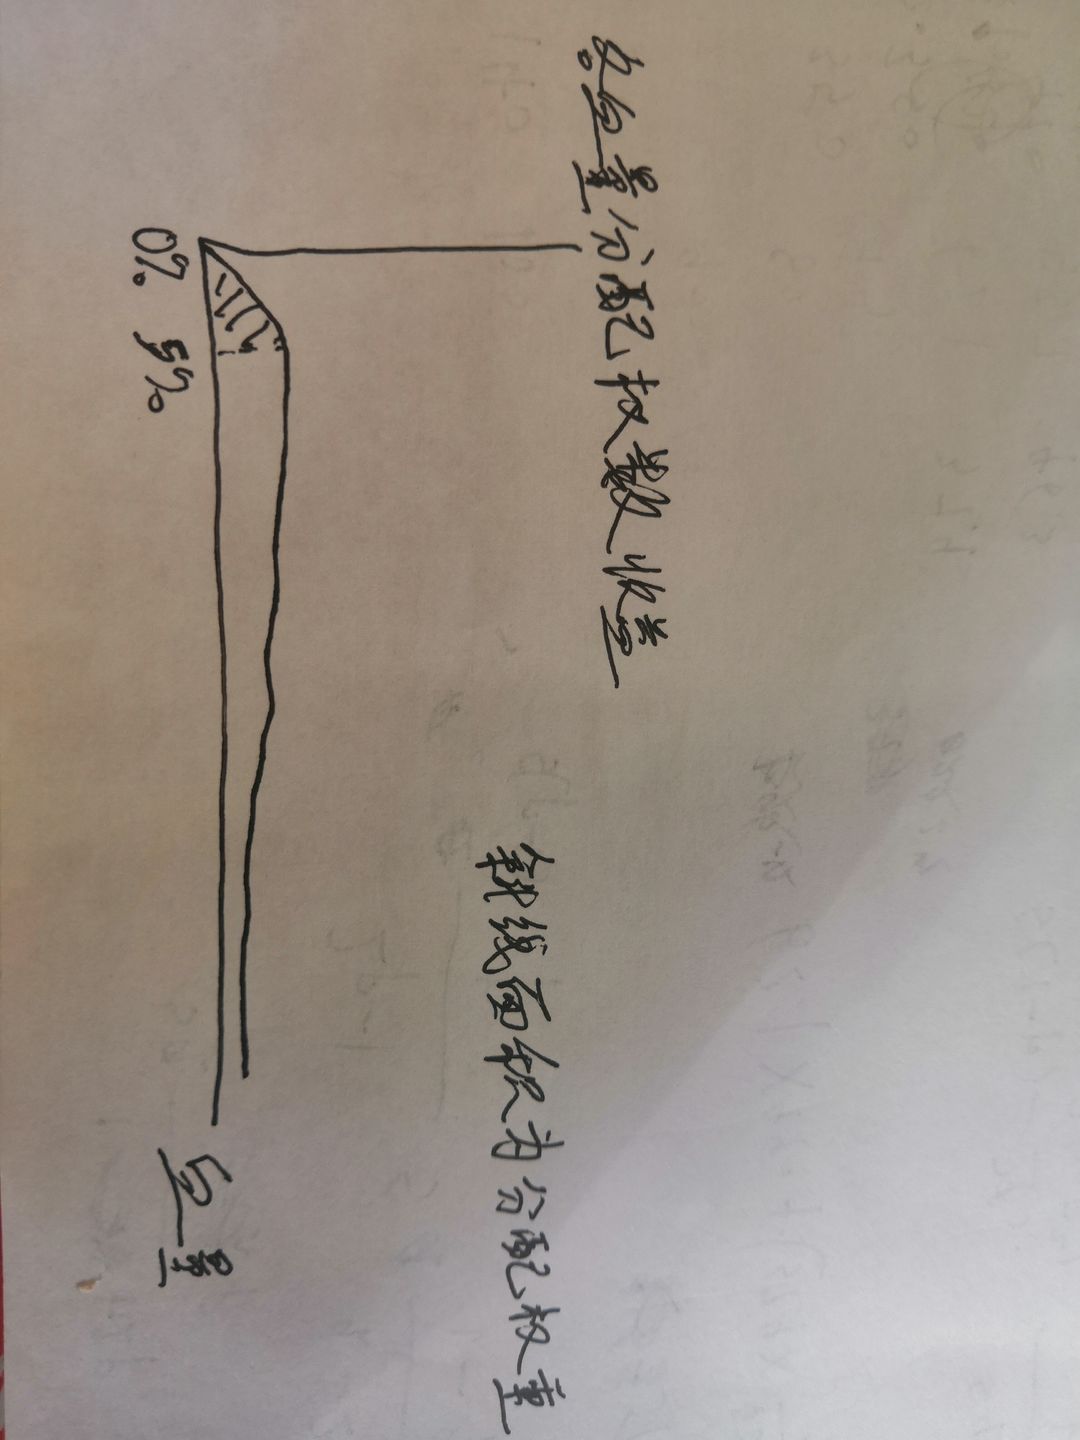 量分配权数收益
斜线面积为分配权重
0% 5%
量